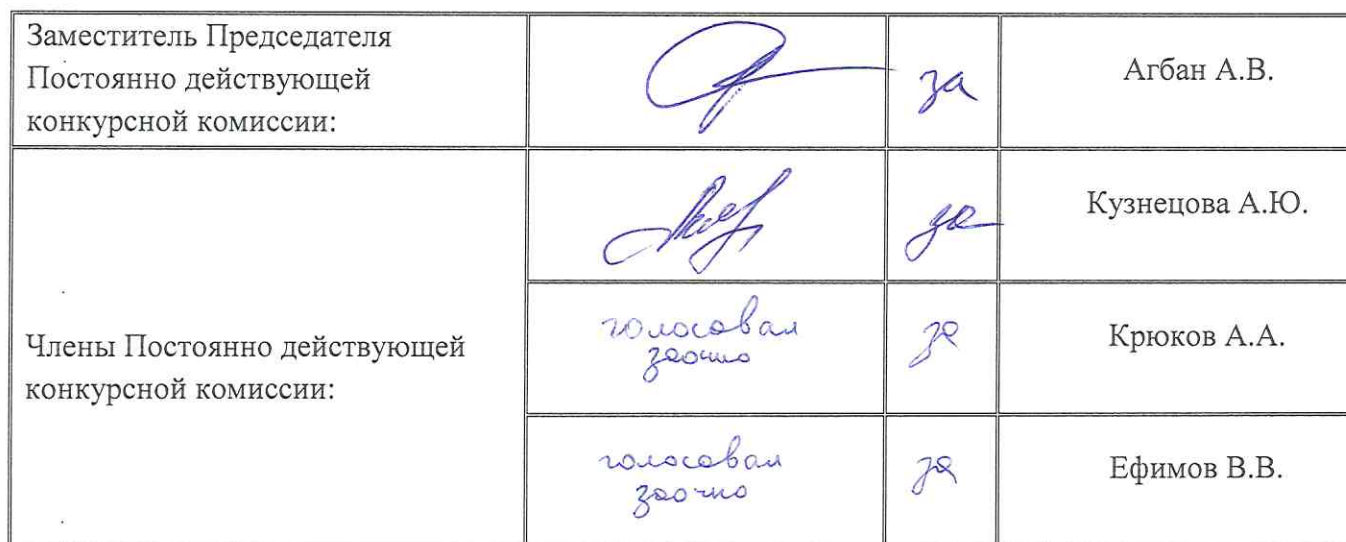 Заместитель Председателя
Постоянно действующей
конкурсной комиссии:
за
Агбан А.В.
Члены Постоянно действующей
конкурсной комиссии:
за
Кузнецова А.Ю.
голосовал
заочно
за
Крюков А.А.
голосовал
заочно
за
Ефимов В.В.